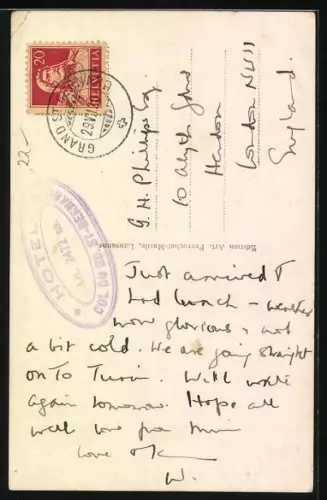 20
HELVETIA
GRAND ST
29.VII
22
HOTEL
COL DU GD. ST-BERNARD
Alt. 2472 m.
G. H. Phillips Esq.
10 Alyth Gdns
Hendon
London NW11
England.
Edition Art. Perrochet-Matile, Lausanne
Just arrived &
had lunch – weather
now glorious & not
a bit cold. We are going straight
on to Turin. Will write
again tomorrow. Hope all
well love from
love
W.